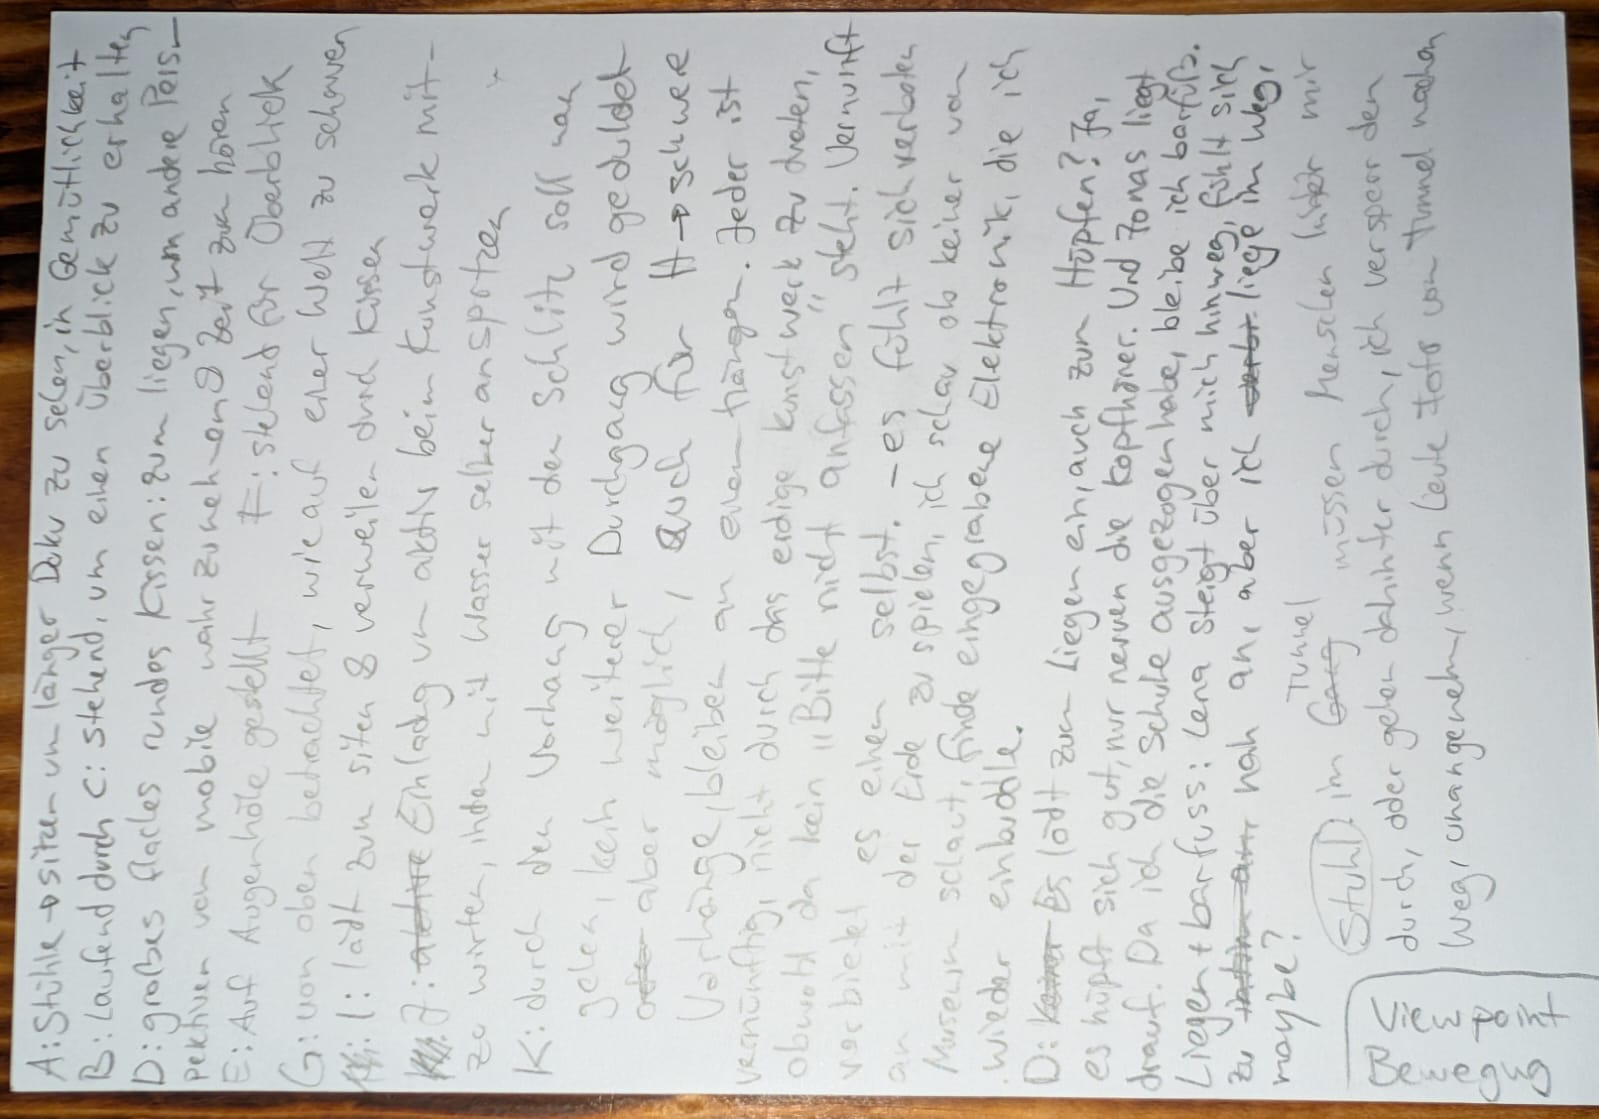 A: Stühle → sitzen um länger Doku zu sehen, in Gemütlichkeit
B: Laufend durch C: stehend, um einen Überblick zu erhalten
D: großes flaches rundes Kissen: zum liegen, um andere Pers-
pektiven vom mobile wahrzunehmen & Zeit zum hören
E: Auf Augenhöhe gestellt F: stehend für Überblick
G: von oben betrachtet, wie auf einer Welt zu schauen
I: lädt zum sitzen & verweilen durch Kissen
J: Einladug um aktiv beim Kunstwerk mit-
zu wirken, indem mit Wasser selber anspritzen
K: durch den Vorhang mit den Schlitz soll man
gehen, kein weiterer Durchgang wird geduldet
aber möglich, auch für H → schwere
Vorhänge, bleiben an einem hängen. Jeder ist
vernünftig, nicht durch das erdige Kunstwerk zu dreten,
obwohl da kein "Bitte nicht anfassen" steht. Vernunft
verbietet es einen selbst. – es fühlt sich verboten
an mit der Erde zu spielen, ich schau ob keiner vom
Museum schaut, finde eingegrabene Elektronik, die ich
wieder einbuddle.
D: Es lädt zum Liegen ein, auch zum Hüpfen? Ja,
es hüpft sich gut, nur nerven die Kopfhörer. Und Jonas liegt
drauf. Da ich die Schuhe ausgezogen habe, bleibe ich barfuß.
Liegen + barfuss: Lena steigt über mich hinweg, fühlt sich
zu nah an, aber ich liege im Weg,
maybe?
Tunnel
Stuhl: im Gang müssen Menschen hinter mir
durch, oder gehen dahinter durch, ich versperr den
Weg, unangenehm, wenn Leute Fotos vom Tunnel machen
View point
Bewegug